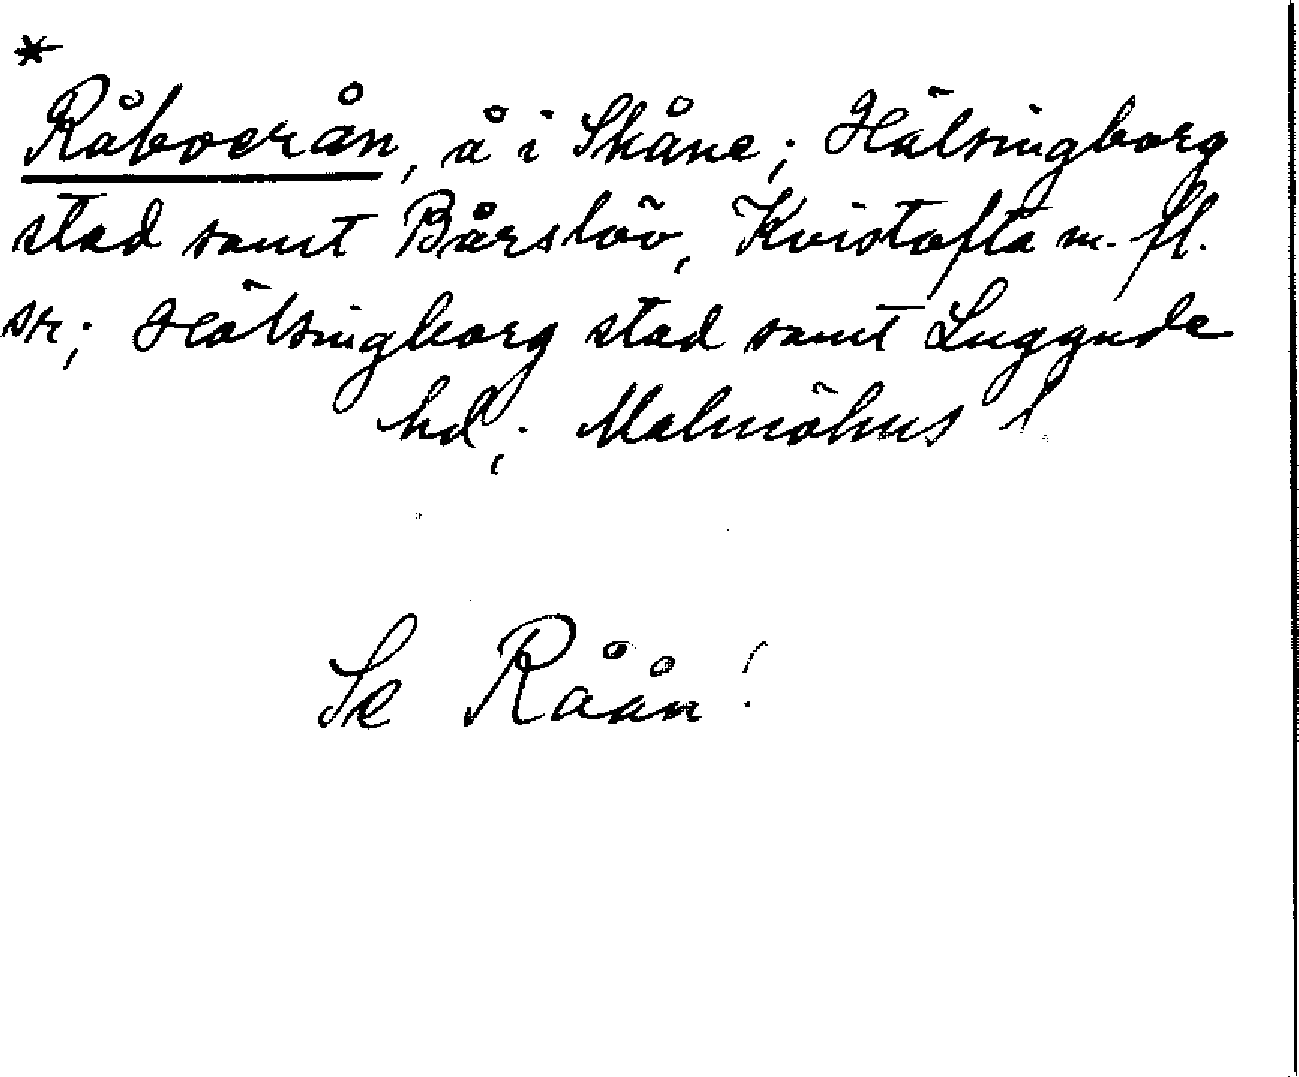 *
Råboerån, å i Skåne; Hälsingborg
stad samt Bårslöv, Kvistofta m. fl.
sr; Hälsingborg stad samt Luggude
hd; Malmöhus l.
Se Råån!